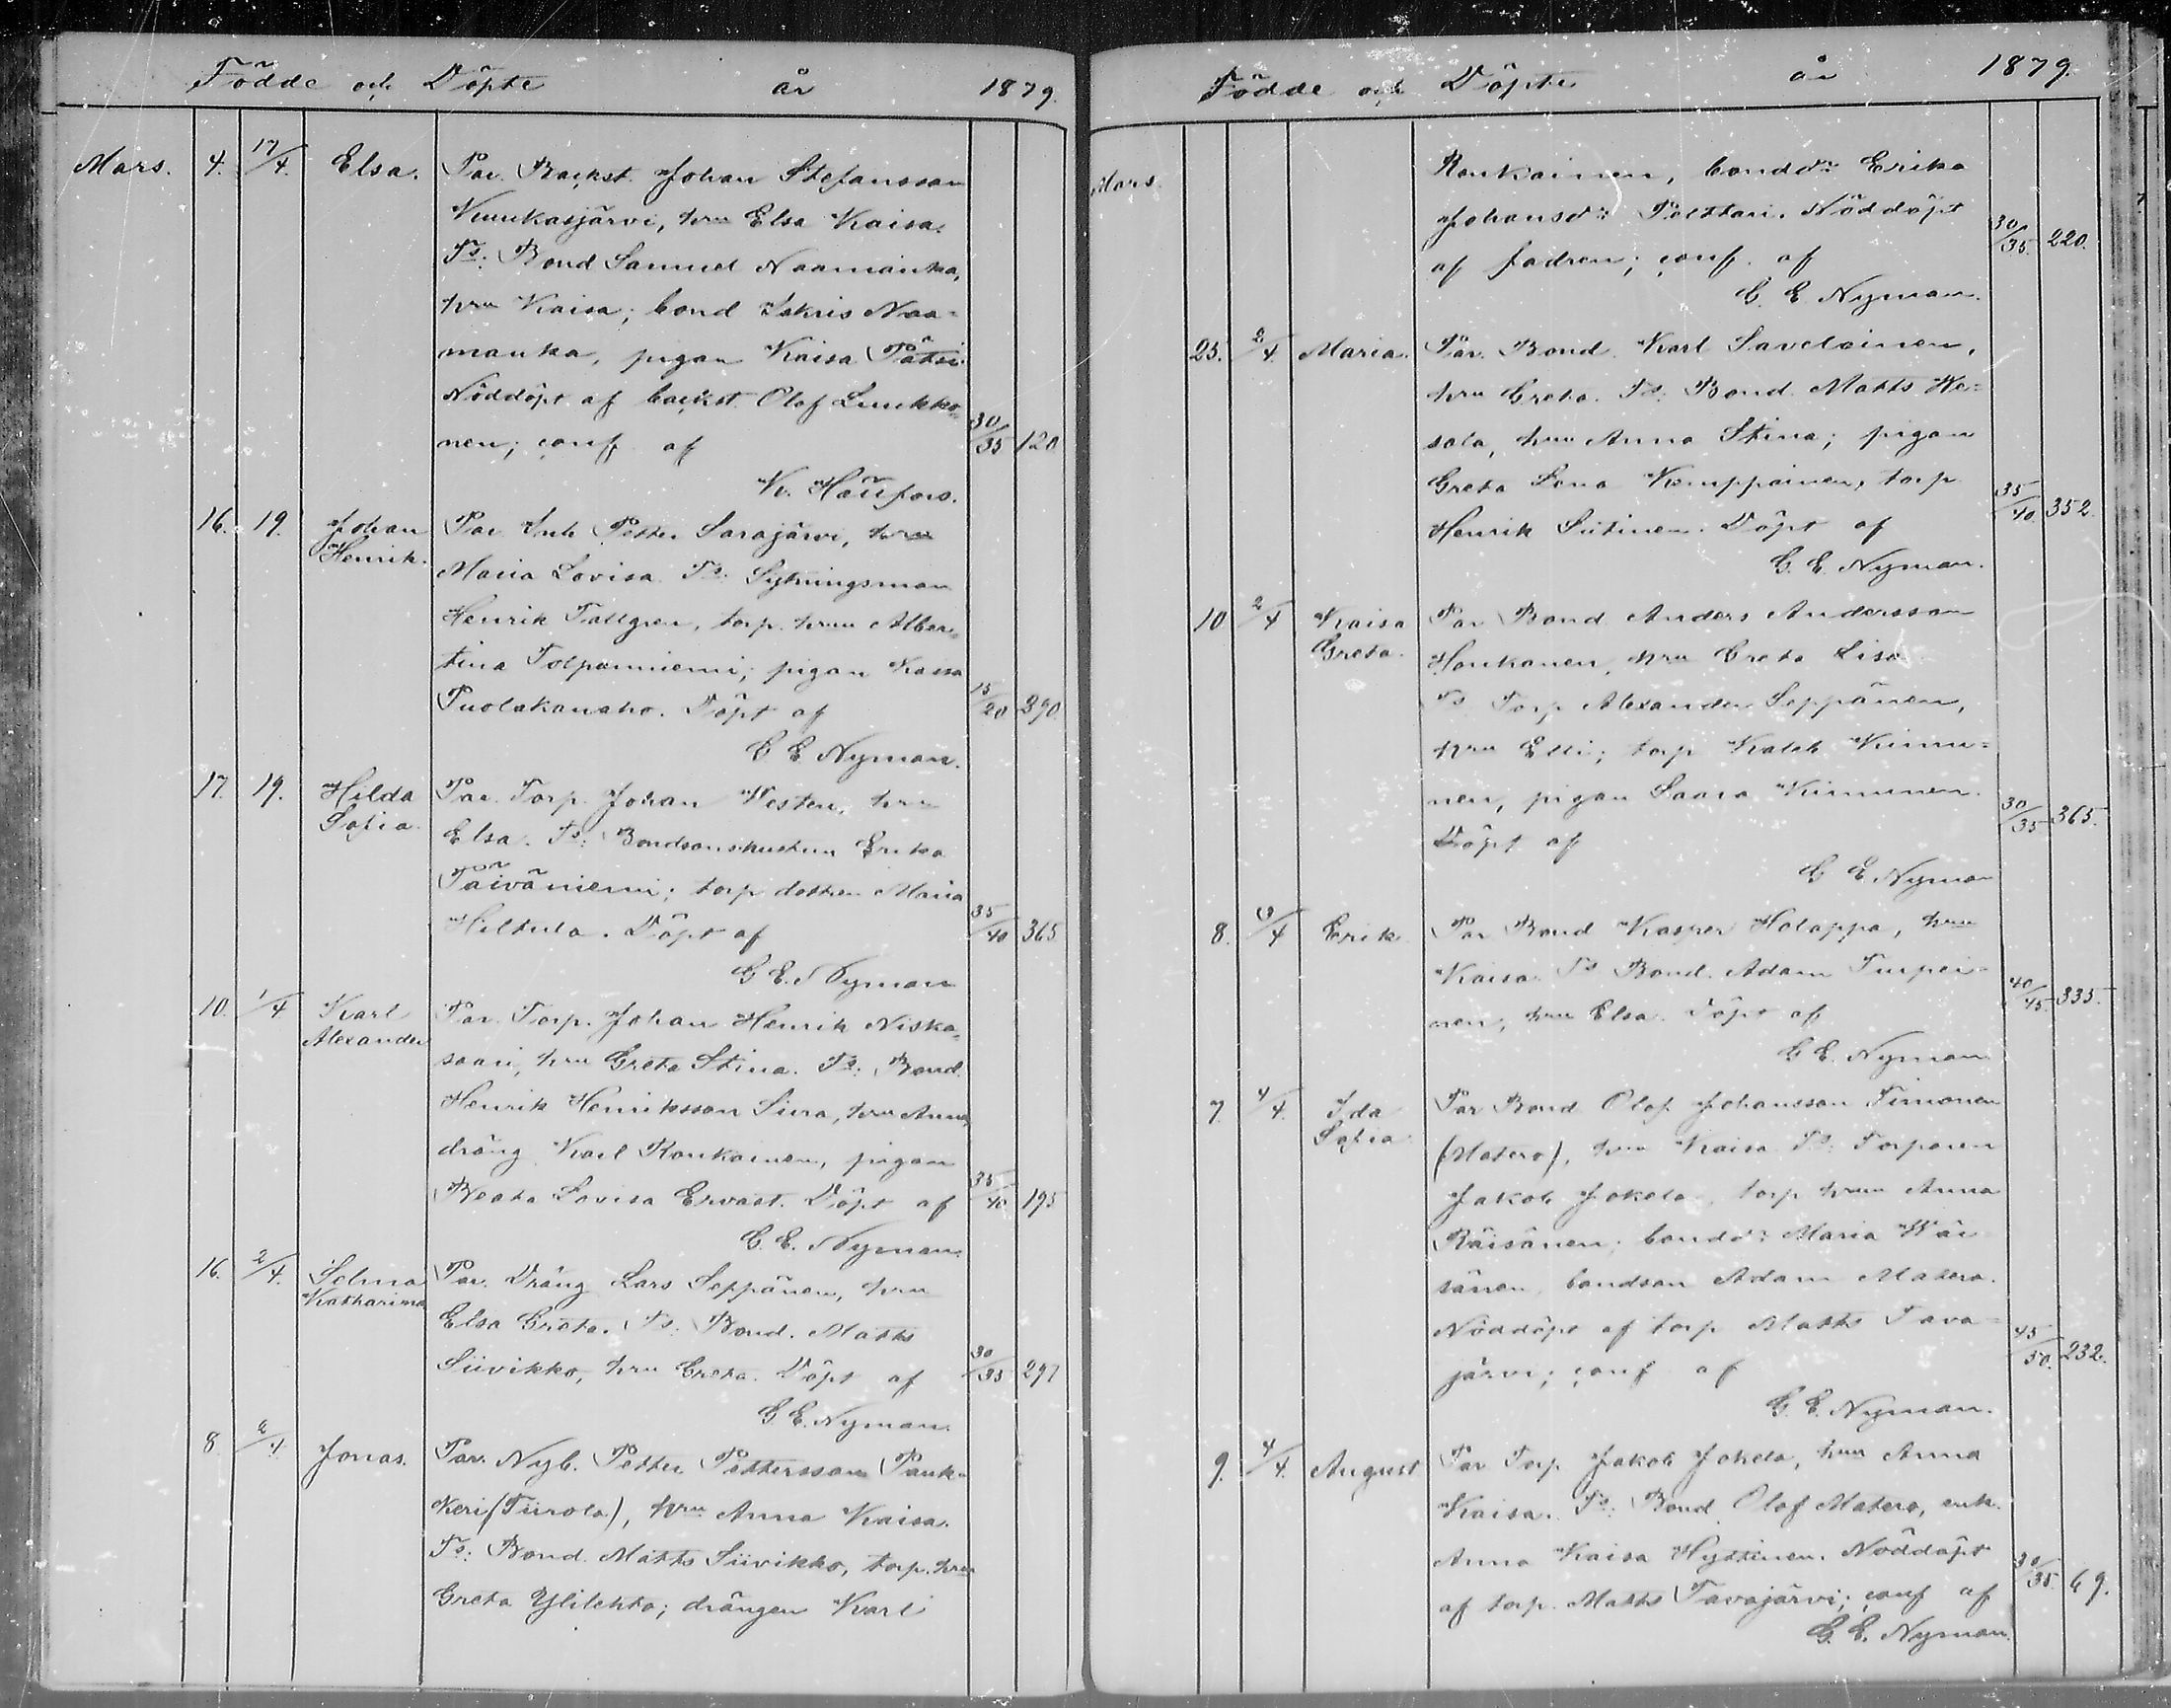 Födde och Döpte år 1879.
Mars. 4. 17/4. Elsa. Par. Backst. Johan Stefansson
Kuukasjärvi, hru Elsa Kaisa.
Ts: Bond Samuel Naamanka,
hru Kaisa; bond Zakris Naa-
manka, pigan Kaisa Pätsi.
Nöddöpt af backst. Olof Luukko-
nen; conf. af 30/35 120
16. 19. Johan Henrik. Par. Inh Petter Sarajärvi, hru
Maria Lovisa. Ts: Sytningsman
Henrik Tallgren, torp. hrun Alber-
tina Tolpanniemi; pigan Kaisa
Puolakanaho. Döpt af 15/20 290.
G E Nyman.
17. 19. Hilda Sofia. Par. Torp. Johan Westen, hru
Elsa. Ts: Bondsonshustrun Erika
Päiväniemi; torp. dottren Maria
Hiltula. Döpt af 35/40 365
G E. Nyman
10. 1/4 Karl Alexander Par. Torp. Johan Henrik Niska-
saari, hru Greta Stina. Ts: Bond.
Henrik Henriksson Siira, hru Anna,
dräng Karl Ronkainen, pigan
Beata Lovisa Ervast. Döpt af 35/40 195
G. E. Nyman.
16. 2/4. Selma Katharina Par. Dräng Lars Seppänen, hru
Elsa Greta. Ts: Bond. Matts
Siivikko, hru Greta. Döpt af 30/35 297
G. E. Nyman.
8. 2/4 Jonas. Par. Nyb. Petter Pettersson Pank-
keri (Tiirola), hru Anna Kaisa.
Ts: Bond. Matts Siivikko, torp. hru
Greta Ylilehto; drängen Karl
Födde och Döpte år 1879.
Mars. Ronkainen, bonddr Erika
Johansdr Polttari. Nöddöpt
af fadren; conf. af 30/35. 220.
G. E. Nyman.
23. 2/4 Maria. Par. Bond. Karl Savelainen,
hru Greta. Ts: Bond. Matts He-
sala, hru Anna Stina; pigan
Greta Lena Kemppainen, torp
Henrik Siitinen. Döpt af 35/40. 352.
G. E. Nyman.
10 2/4 Kaisa Greta. Par Bond Anders Andersson
Honkanen, hru Greta Lisa
Ts Torp Alexander Seppänen,
hru Elli; torp Kaleb Kinnu-
nen, pigan Saara Kinnunen.
Döpt af 30/35 365.
G E. Nyman
8. /4 Erik Par Bond Kasper Holappa, hru
Kaisa. Ts Bond. Adam Turpei-
nen, hru Elsa. Döpt af 40/45. 335.
G E. Nyman
7. 4/4. Ida Sofia. Par Bond Olof Johansson Timonen
(Matero), hru Kaisa Ts: Torparen
Jakob Jokela, torp hrun Anna
Räisänen; bonddr: Maria Wäi-
sänen, bondson Adam Matero.
Nöddöpt af torp. Matts Tava-
järvi; conf af 45/50. 232.
G. E. Nyman.
9. 4/4. August Par Torp Jakob Jokela, hru Anna
Kaisa. Ts: Bond Olof Matero, enk.
Anna Kaisa Hyttinen. Nöddöpt
af torp. Matts Tavajärvi; conf af 30/35. 69.
G. E. Nyman.